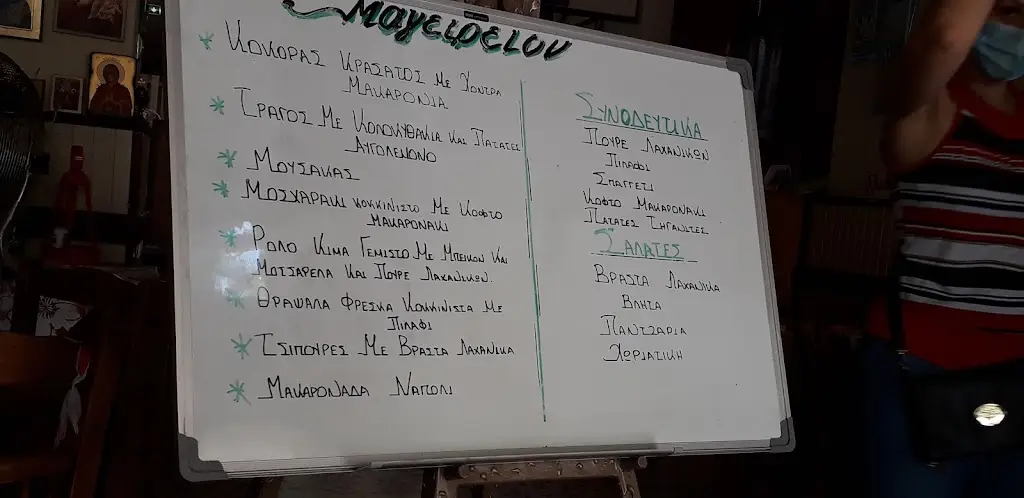 Μαγειρείου
* ΚΟΚΟΡΑΣ ΚΡΑΣΑΤΟΣ ΜΕ ΧΟΝΤΡΑ
ΜΑΚΑΡΟΝΙΑ
* ΤΡΑΓΟΣ ΜΕ ΚΟΛΟΚΥΘΑΚΙΑ ΚΑΙ ΠΑΤΑΤΕΣ
ΑΥΓΟΛΕΜΟΝΟ
* ΜΟΥΣΑΚΑΣ
* ΜΟΣΧΑΡΑΚΙ ΚΟΚΚΙΝΙΣΤΟ ΜΕ ΚΟΦΤΟ
ΜΑΚΑΡΟΝΑΚΙ
* ΡΟΛΟ ΚΙΜΑ ΓΕΜΙΣΤΟ ΜΕ ΜΠΕΙΚΟΝ ΚΑΙ
ΜΟΤΣΑΡΕΛΑ ΚΑΙ ΠΟΥΡΕ ΛΑΧΑΝΙΚΩΝ.
* ΘΡΑΨΑΛΑ ΦΡΕΣΚΑ ΚΟΚΚΙΝΙΣΤΑ ΜΕ
ΠΙΛΑΦΙ
* ΤΣΙΠΟΥΡΕΣ ΜΕ ΒΡΑΣΤΑ ΛΑΧΑΝΙΚΑ
* ΜΑΚΑΡΟΝΑΔΑ ΝΑΠΟΛΙ
ΣΥΝΟΔΕΥΤΙΚΑ
ΠΟΥΡΕ ΛΑΧΑΝΙΚΩΝ
ΠΙΛΑΦΙ
ΣΠΑΓΓΕΤΙ
ΚΟΦΤΟ ΜΑΚΑΡΟΝΑΚΙ
ΠΑΤΑΤΕΣ ΤΗΓΑΝΙΤΕΣ
ΣΑΛΑΤΕΣ
ΒΡΑΣΤΑ ΛΑΧΑΝΙΚΑ
ΒΛΗΤΑ
ΠΑΝΤΖΑΡΙΑ
ΧΩΡΙΑΤΙΚΗ